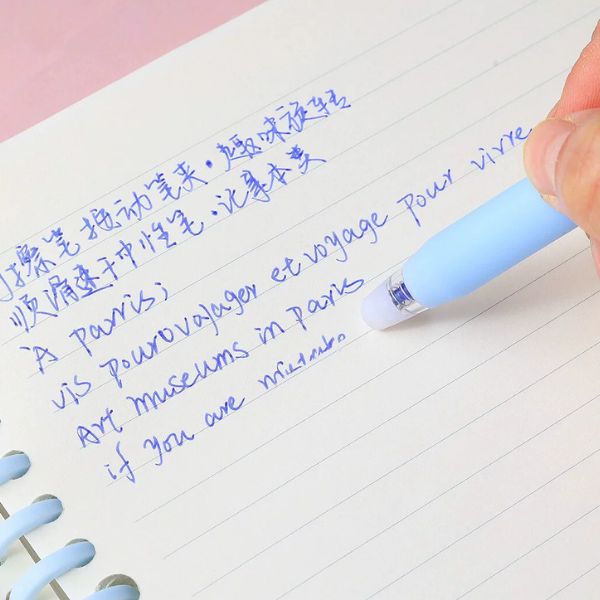 擦笔按动笔夹.趣味旋转
顺滑速干中性笔.记事本类
A parris,
vis pourovajager et voyage pour vivre
Art museums in paris
if you are